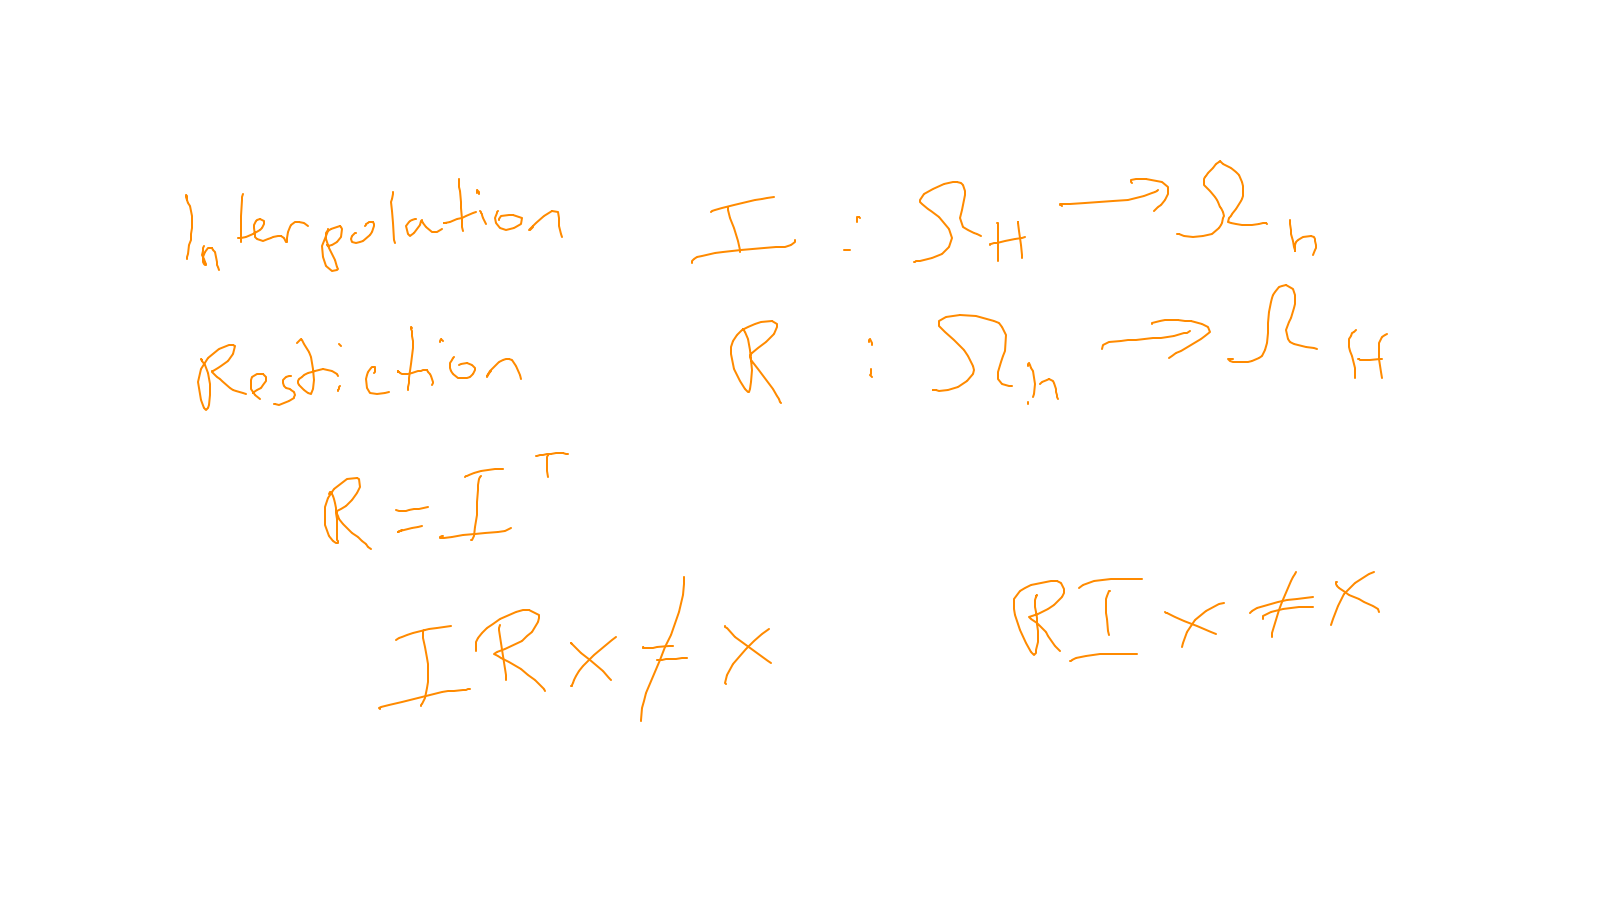 Interpolation I : Ω_H → Ω_h
Restiction R : Ω_h → Ω_H
R = I^T
I R x ≠ x R I x ≠ x